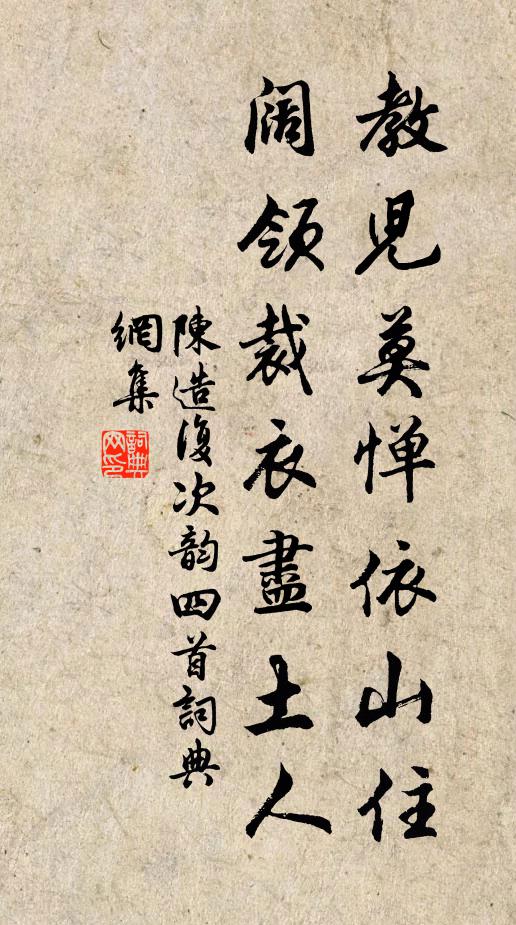 教兒莫憚依山住
闊領裁衣盡土人
陳造復次韵四首詞典
網集
詞典网印